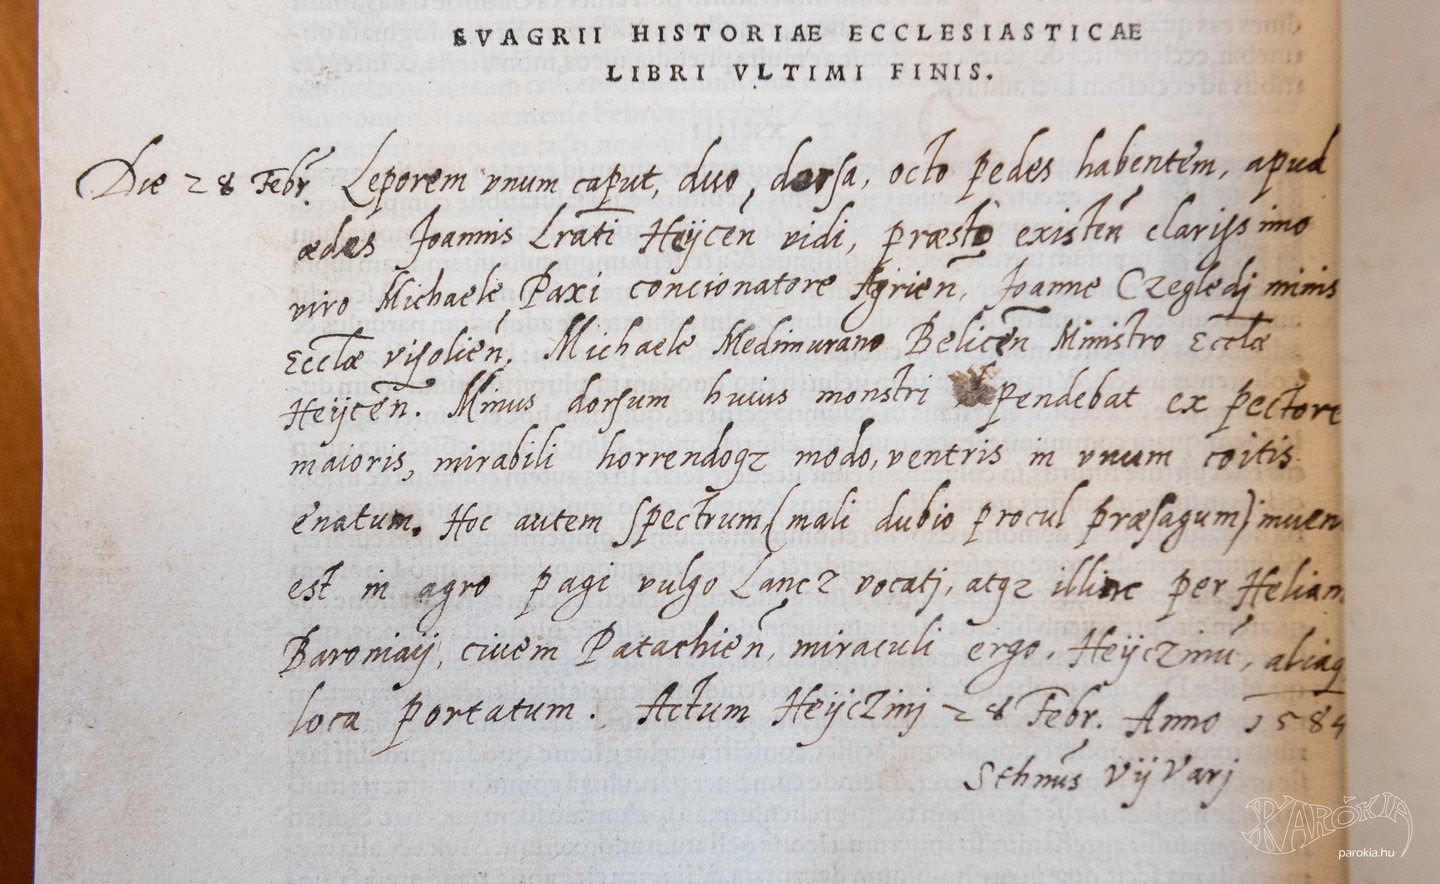 EVAGRII HISTORIAE ECCLESIASTICAE
LIBRI VLTIMI FINIS.
Die 28 Febr. Leporem vnum caput, duo, dorsa, octo pedes habentem, apud
ædes Joannis Lrati Heÿcen̄ vidi, præsto existen̄ clarissimo
viro Michaele Paxi concionatore Agrien̄, Joanne Czegledj minis
Eccłæ visolien̄, Michaele Medimurano Belicen̄ Ministro Eccłæ
Heÿcen̄. Minus dorsum huius monstri pendebat ex pectore
maioris, mirabili horrendoqz modo, ventris in vnum coitis
enatum. Hoc autem spectrum (mali dubio procul præsagum) inuen
est in agro pagi vulgo Lancz vocatj, atqz illinc per Helian
civem Patachien̄, miraculi ergo, Heÿczinū, aliaq
loca portatum. Actum Heÿczinj 28 Febr. Anno 1584
Vÿvarj
PARÓKIA
parokia.hu